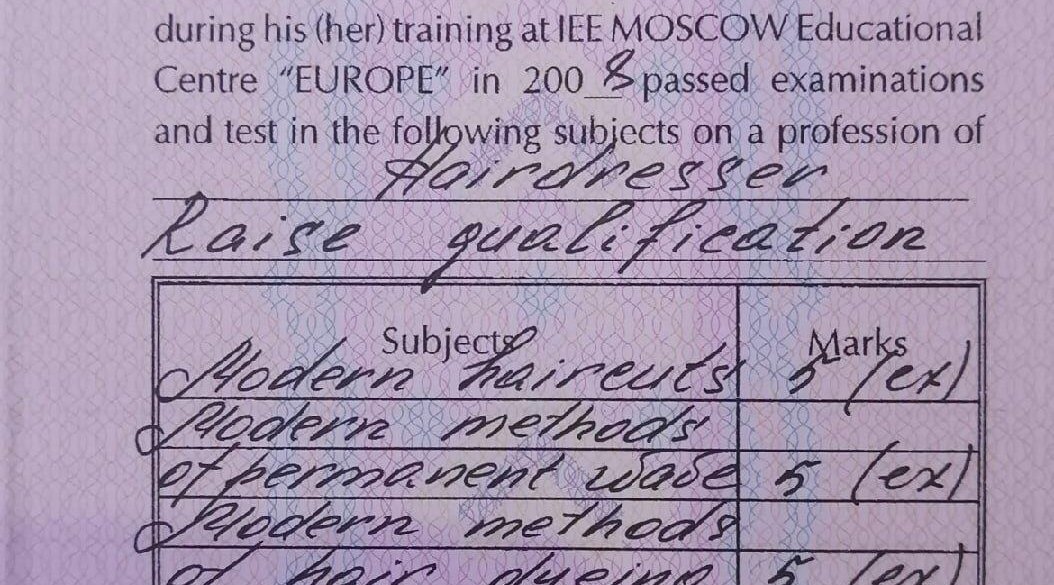 during his (her) training at IEE MOSCOW Educational
Centre "EUROPE" in 2008 passed examinations
and test in the following subjects on a profession of
Hairdresser
Raise qualification
Subjects Marks
Modern haircuts 5 (ex)
Modern methods
of permanent wave 5 (ex)
Modern methods
of hair dyeing 5 (ex)